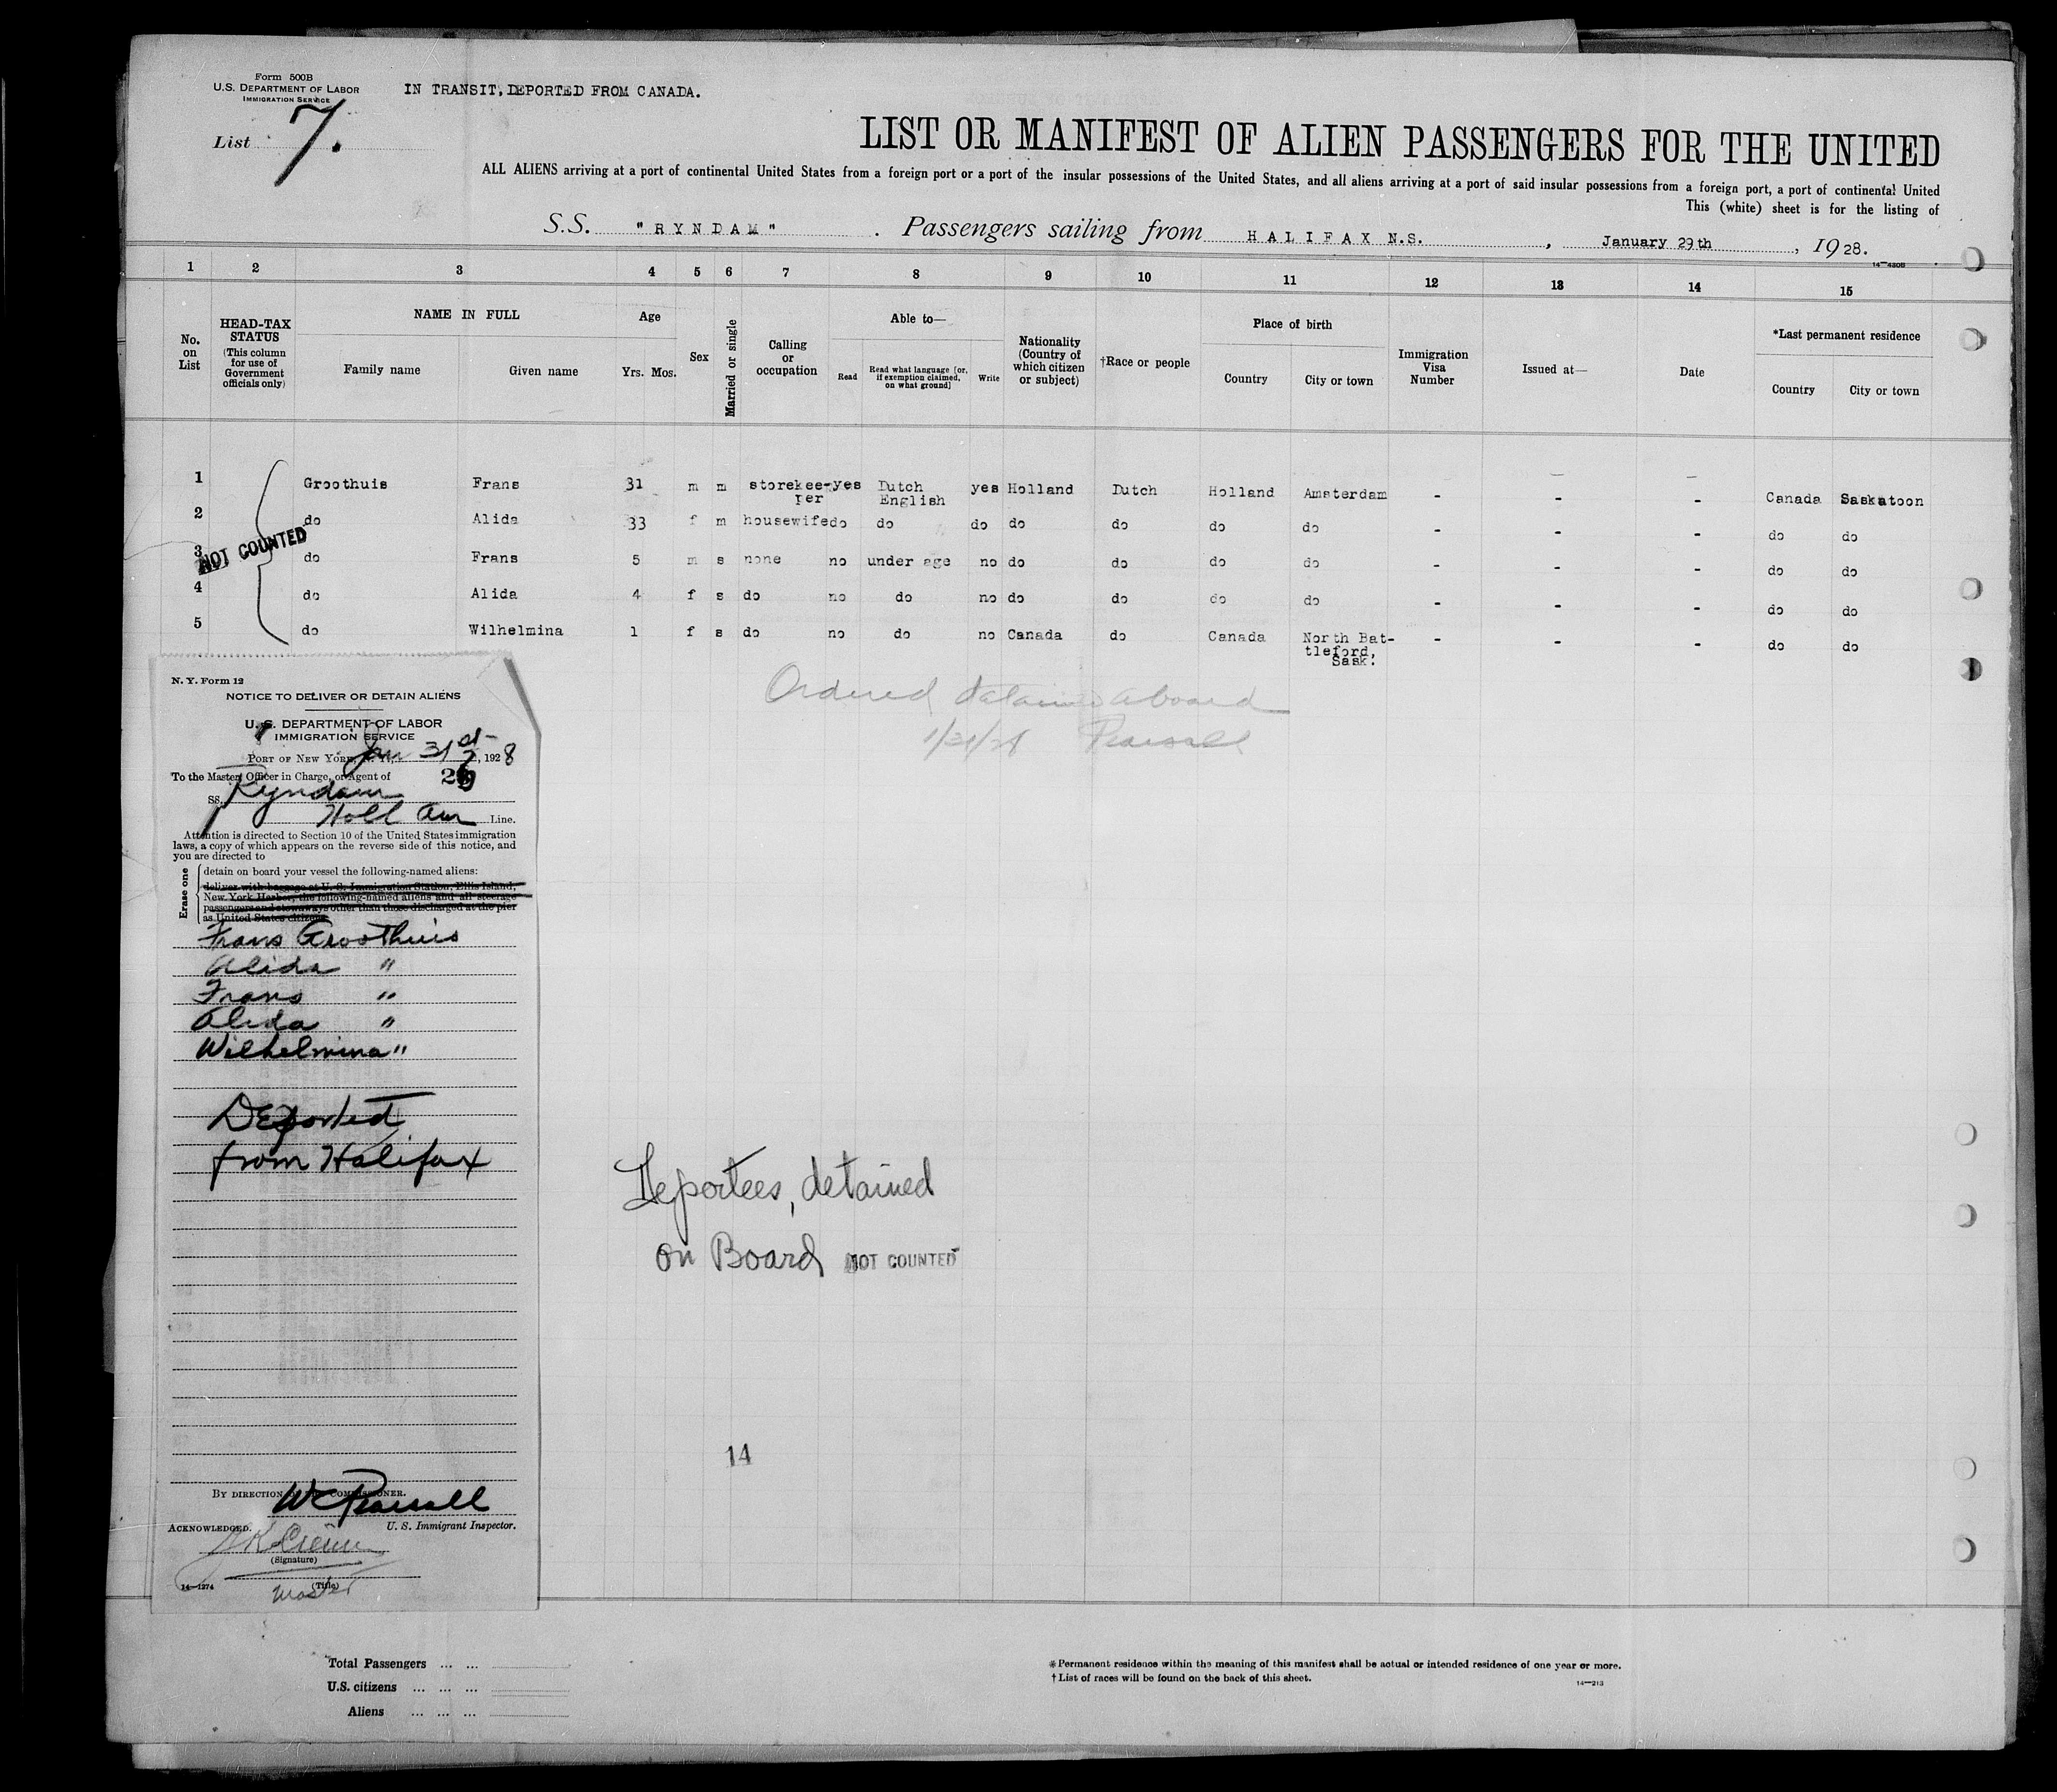 Form 500B
U.S. DEPARTMENT OF LABOR
IMMIGRATION SERVICE
IN TRANSIT, DEPORTED FROM CANADA.
List 7.
LIST OR MANIFEST OF ALIEN PASSENGERS FOR THE UNITED
ALL ALIENS arriving at a port of continental United States from a foreign port or a port of the insular possessions of the United States, and all aliens arriving at a port of said insular possessions from a foreign port, a port of continental United
This (white) sheet is for the listing of
S.S. "RYNDAM" . Passengers sailing from HALIFAX N.S. , January 29th , 1928.
14—430B
1 2 3 4 5 6 7 8 9 10 11 12 13 14 15
No. on List
HEAD-TAX STATUS (This column for use of Government officials only)
NAME IN FULL
Family name Given name
Age
Yrs. Mos.
Sex
Married or single
Calling or occupation
Able to—
Read Read what language [or, if exemption claimed, on what ground] Write
Nationality (Country of which citizen or subject)
†Race or people
Place of birth
Country City or town
Immigration Visa Number
Issued at—
Date
*Last permanent residence
Country City or town
1 Groothuis Frans 31 m m storekee-per yes Dutch English yes Holland Dutch Holland Amsterdam - - - Canada Saskatoon
2 do Alida 33 f m housewife do do do do do do do - - - do do
3 do Frans 5 m s none no under age no do do do do - - - do do
4 do Alida 4 f s do no do no do do do do - - - do do
5 do Wilhelmina 1 f s do no do no Canada do Canada North Bat-tleford, Sask. - - - do do
NOT COUNTED
Ordered detained aboard
1/31/28 Pearsall
N. Y. Form 12
NOTICE TO DELIVER OR DETAIN ALIENS
U. S. DEPARTMENT OF LABOR
IMMIGRATION SERVICE
PORT OF NEW YORK, N. Y., Jan 31st, 1928
To the Master, Officer in Charge, or Agent of
SS. Ryndam
Holl Am Line.
Attention is directed to Section 10 of the United States immigration
laws, a copy of which appears on the reverse side of this notice, and
you are directed to
Erase one
detain on board your vessel the following-named aliens:
deliver with baggage at U. S. Immigration Station, Ellis Island,
New York Harbor, the following-named aliens and all steerage
passengers and stowaways other than those discharged at the pier
as United States citizens
Frans Groothuis
Alida "
Frans "
Alida "
Wilhelmina "
Deported
from Halifax
Deportees, detained
on Board NOT COUNTED
14
BY DIRECTION OF THE COMMISSIONER.
W Pearsall
U. S. Immigrant Inspector.
ACKNOWLEDGED.
(Signature)
Master
(Title)
14—1274
Total Passengers ... ...
U.S. citizens ... ... ...
Aliens ... ... ...
*Permanent residence within the meaning of this manifest shall be actual or intended residence of one year or more.
†List of races will be found on the back of this sheet.
14—213